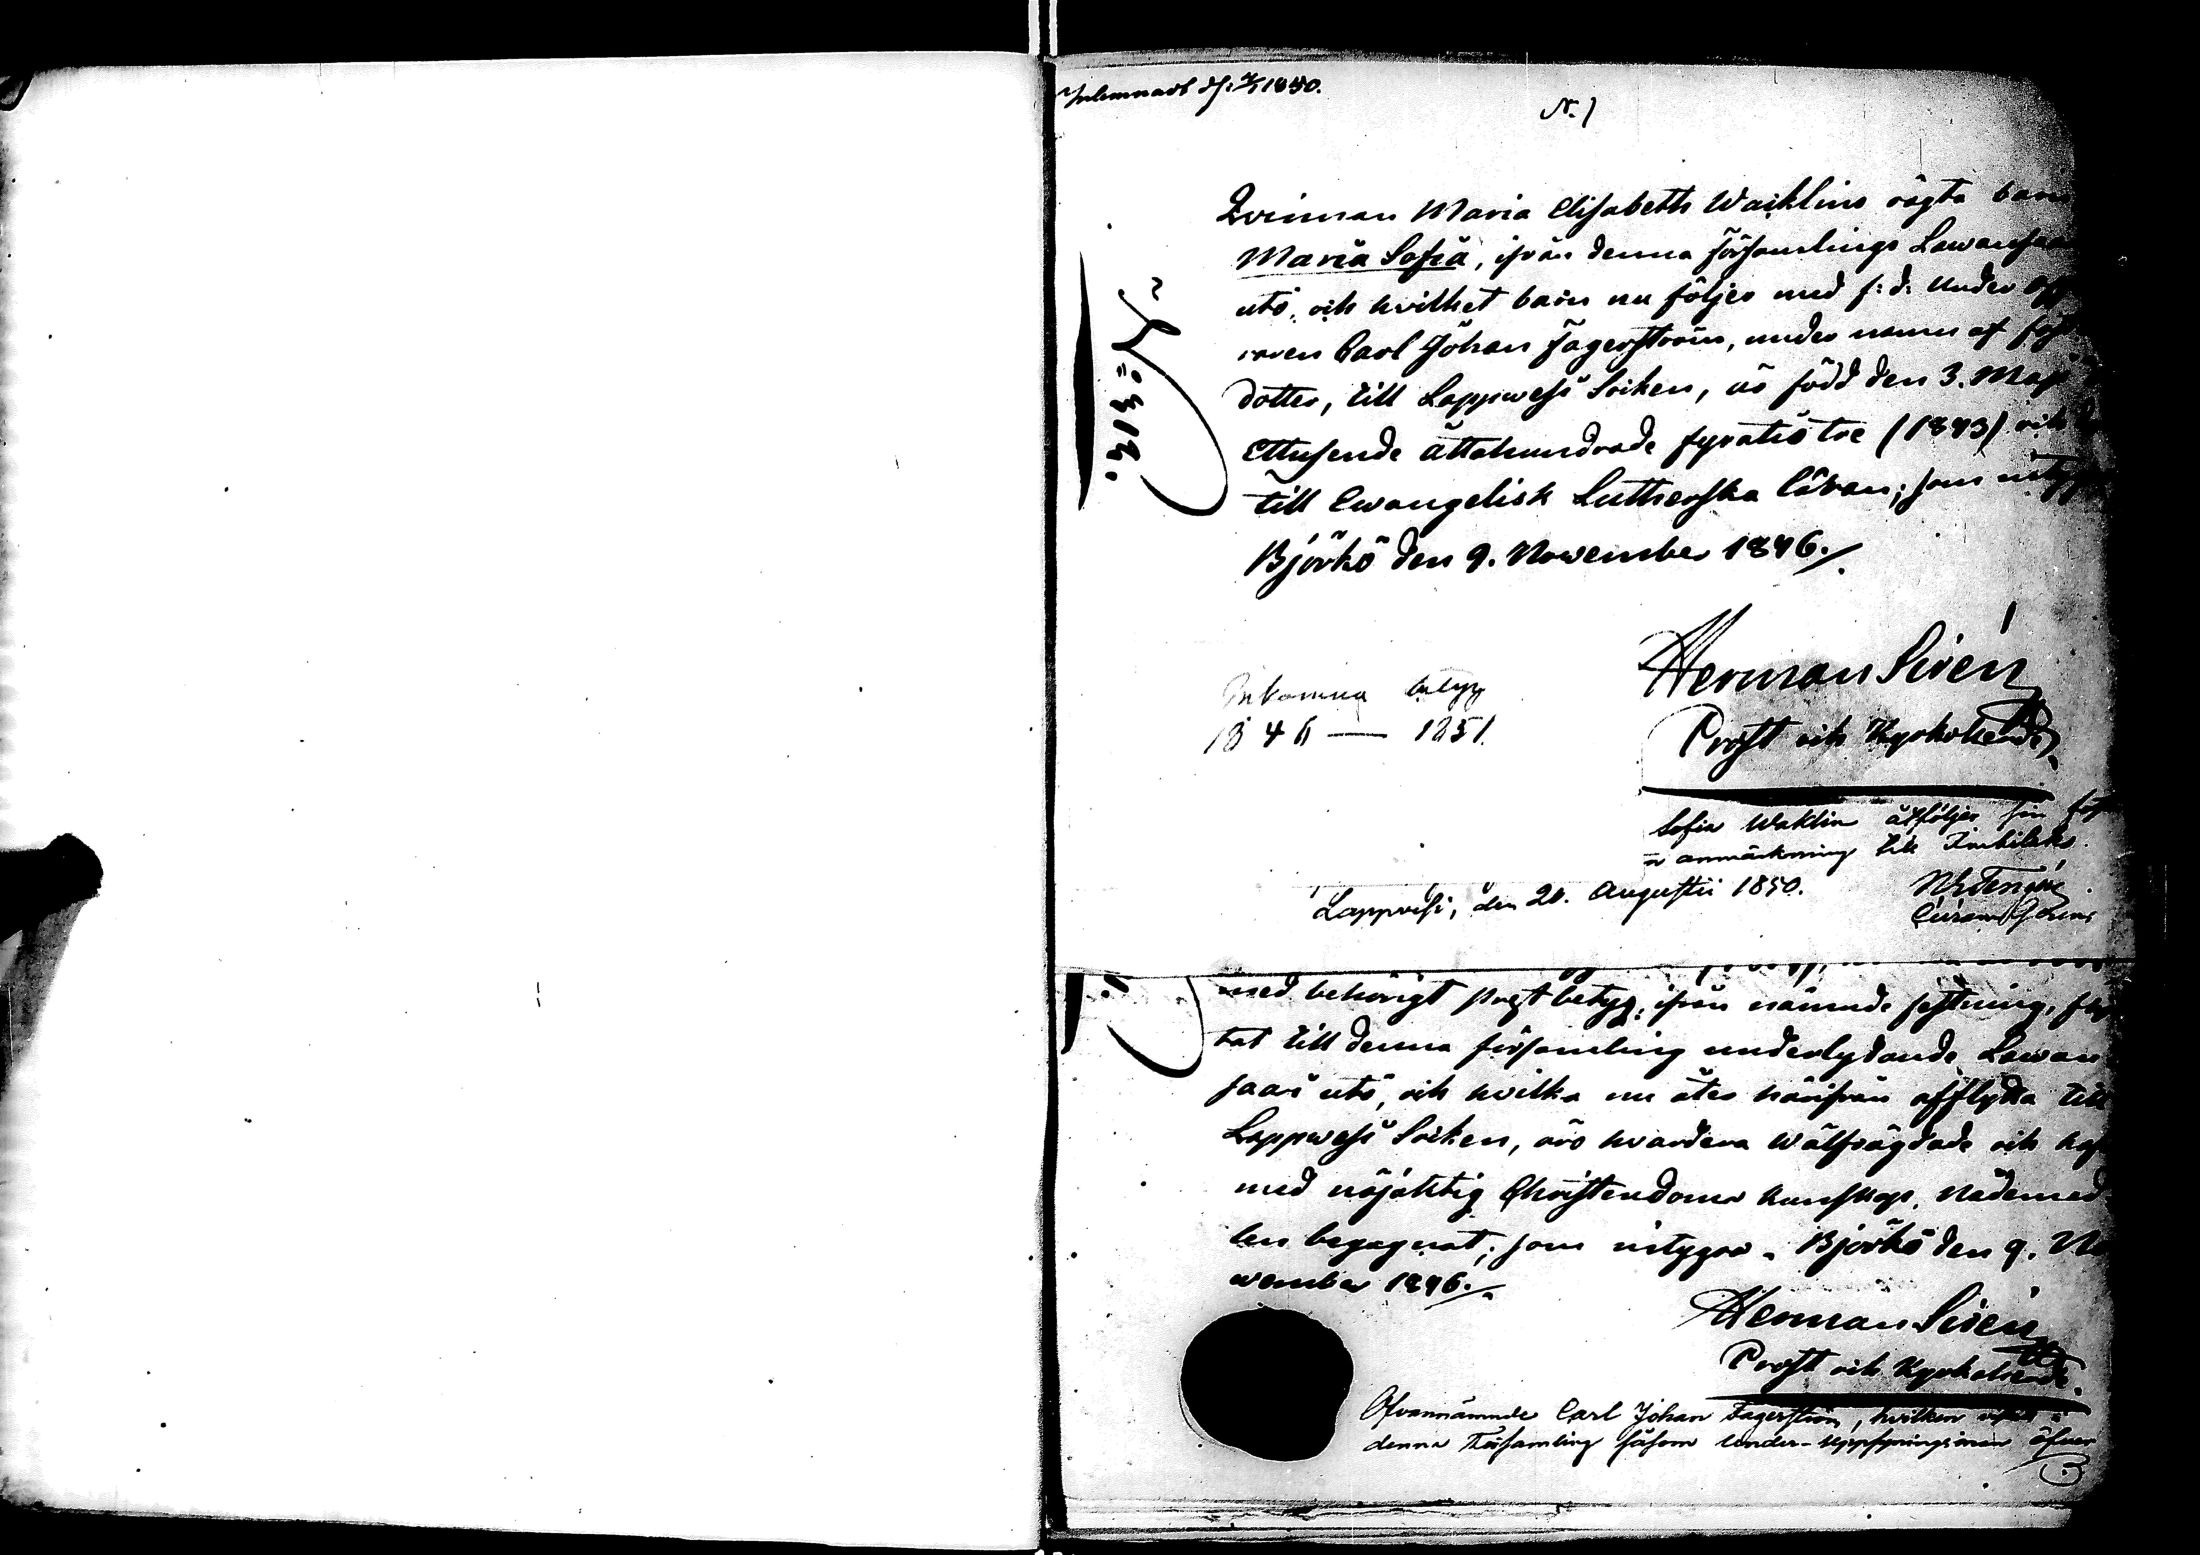 Inlemnadt d. 1850.
N. 1
Qvinnan Maria Elisabeth Waiklins oägta barn
Maria Sofia, ifrån denna församlings Lawansaari
utö, och hvilket barn nu följer med f: d: Under
Carl Johan Fagerström, under namn af fost
dotter, till Lappwesi Socken, är född den 3. Maji
Ettusende Åttahundrade fyratio tre (1843) och
till Ewangelisk Lutherska läran; som
Björkö den 9. November 1846.
Björkö
Herman Sirén
Prost och Kyrkoherde
Inkomna betyg
1846 — 1851.
Sofia Waklin åtföljer sin
anmärkning till Imbilaks.
Lappvesi, den 20. Augustii 1850.
med behörigt prestbetyg, ifrån nämnde fästning,
tat till denna församling underlydande Lawan
saari utö, och hvilka nu åter härifrån afflytta till
Lappwesi Socken, äro hvardera wälfrägdade och
med nöjaktig Christendoms kunskap, Nådemed
len begagnat; som intygar. Björkö den 9. No
vember 1846.
Herman Sirén
Prost och Kyrkoherde.
Ofvannämnde Carl Johan Fagerström, hvilken
denna Församling såsom Under-Uppsyningsman öfver